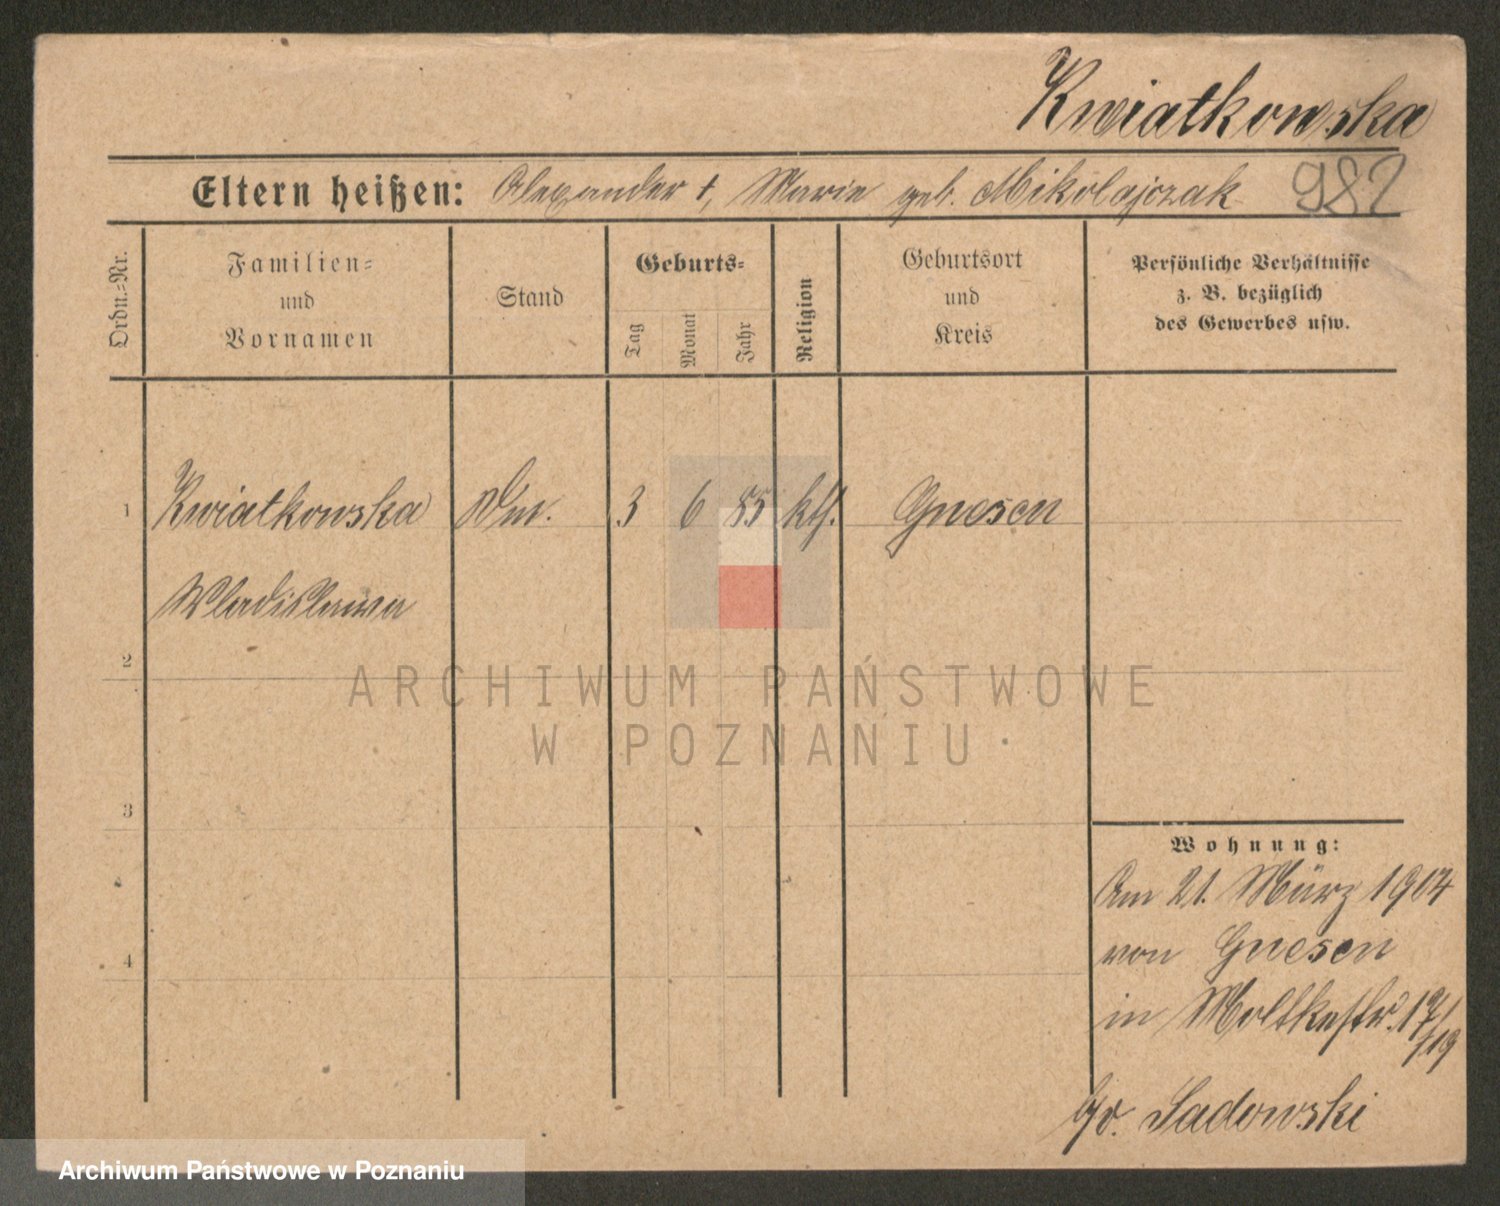 Kwiatkowska
Eltern heißen: Alexander †, Marie geb. Mikolajczak
982
Ordn.=Nr.
Familien=
und
Vornamen
Stand
Geburts=
Tag
Monat
Jahr
Religion
Geburtsort
und
Kreis
Persönliche Verhältnisse
z. B. bezüglich
des Gewerbes usw.
1 Kwiatkowska 3 6 85 kth. Gnesen
Wladislawa
2
ARCHIWUM PAŃSTWOWE
W POZNANIU
3
Wohnung:
Am 21. März 1904
von Gnesen
in Moltkestr. 17/19
4
Sadowski
Archiwum Państwowe w Poznaniu